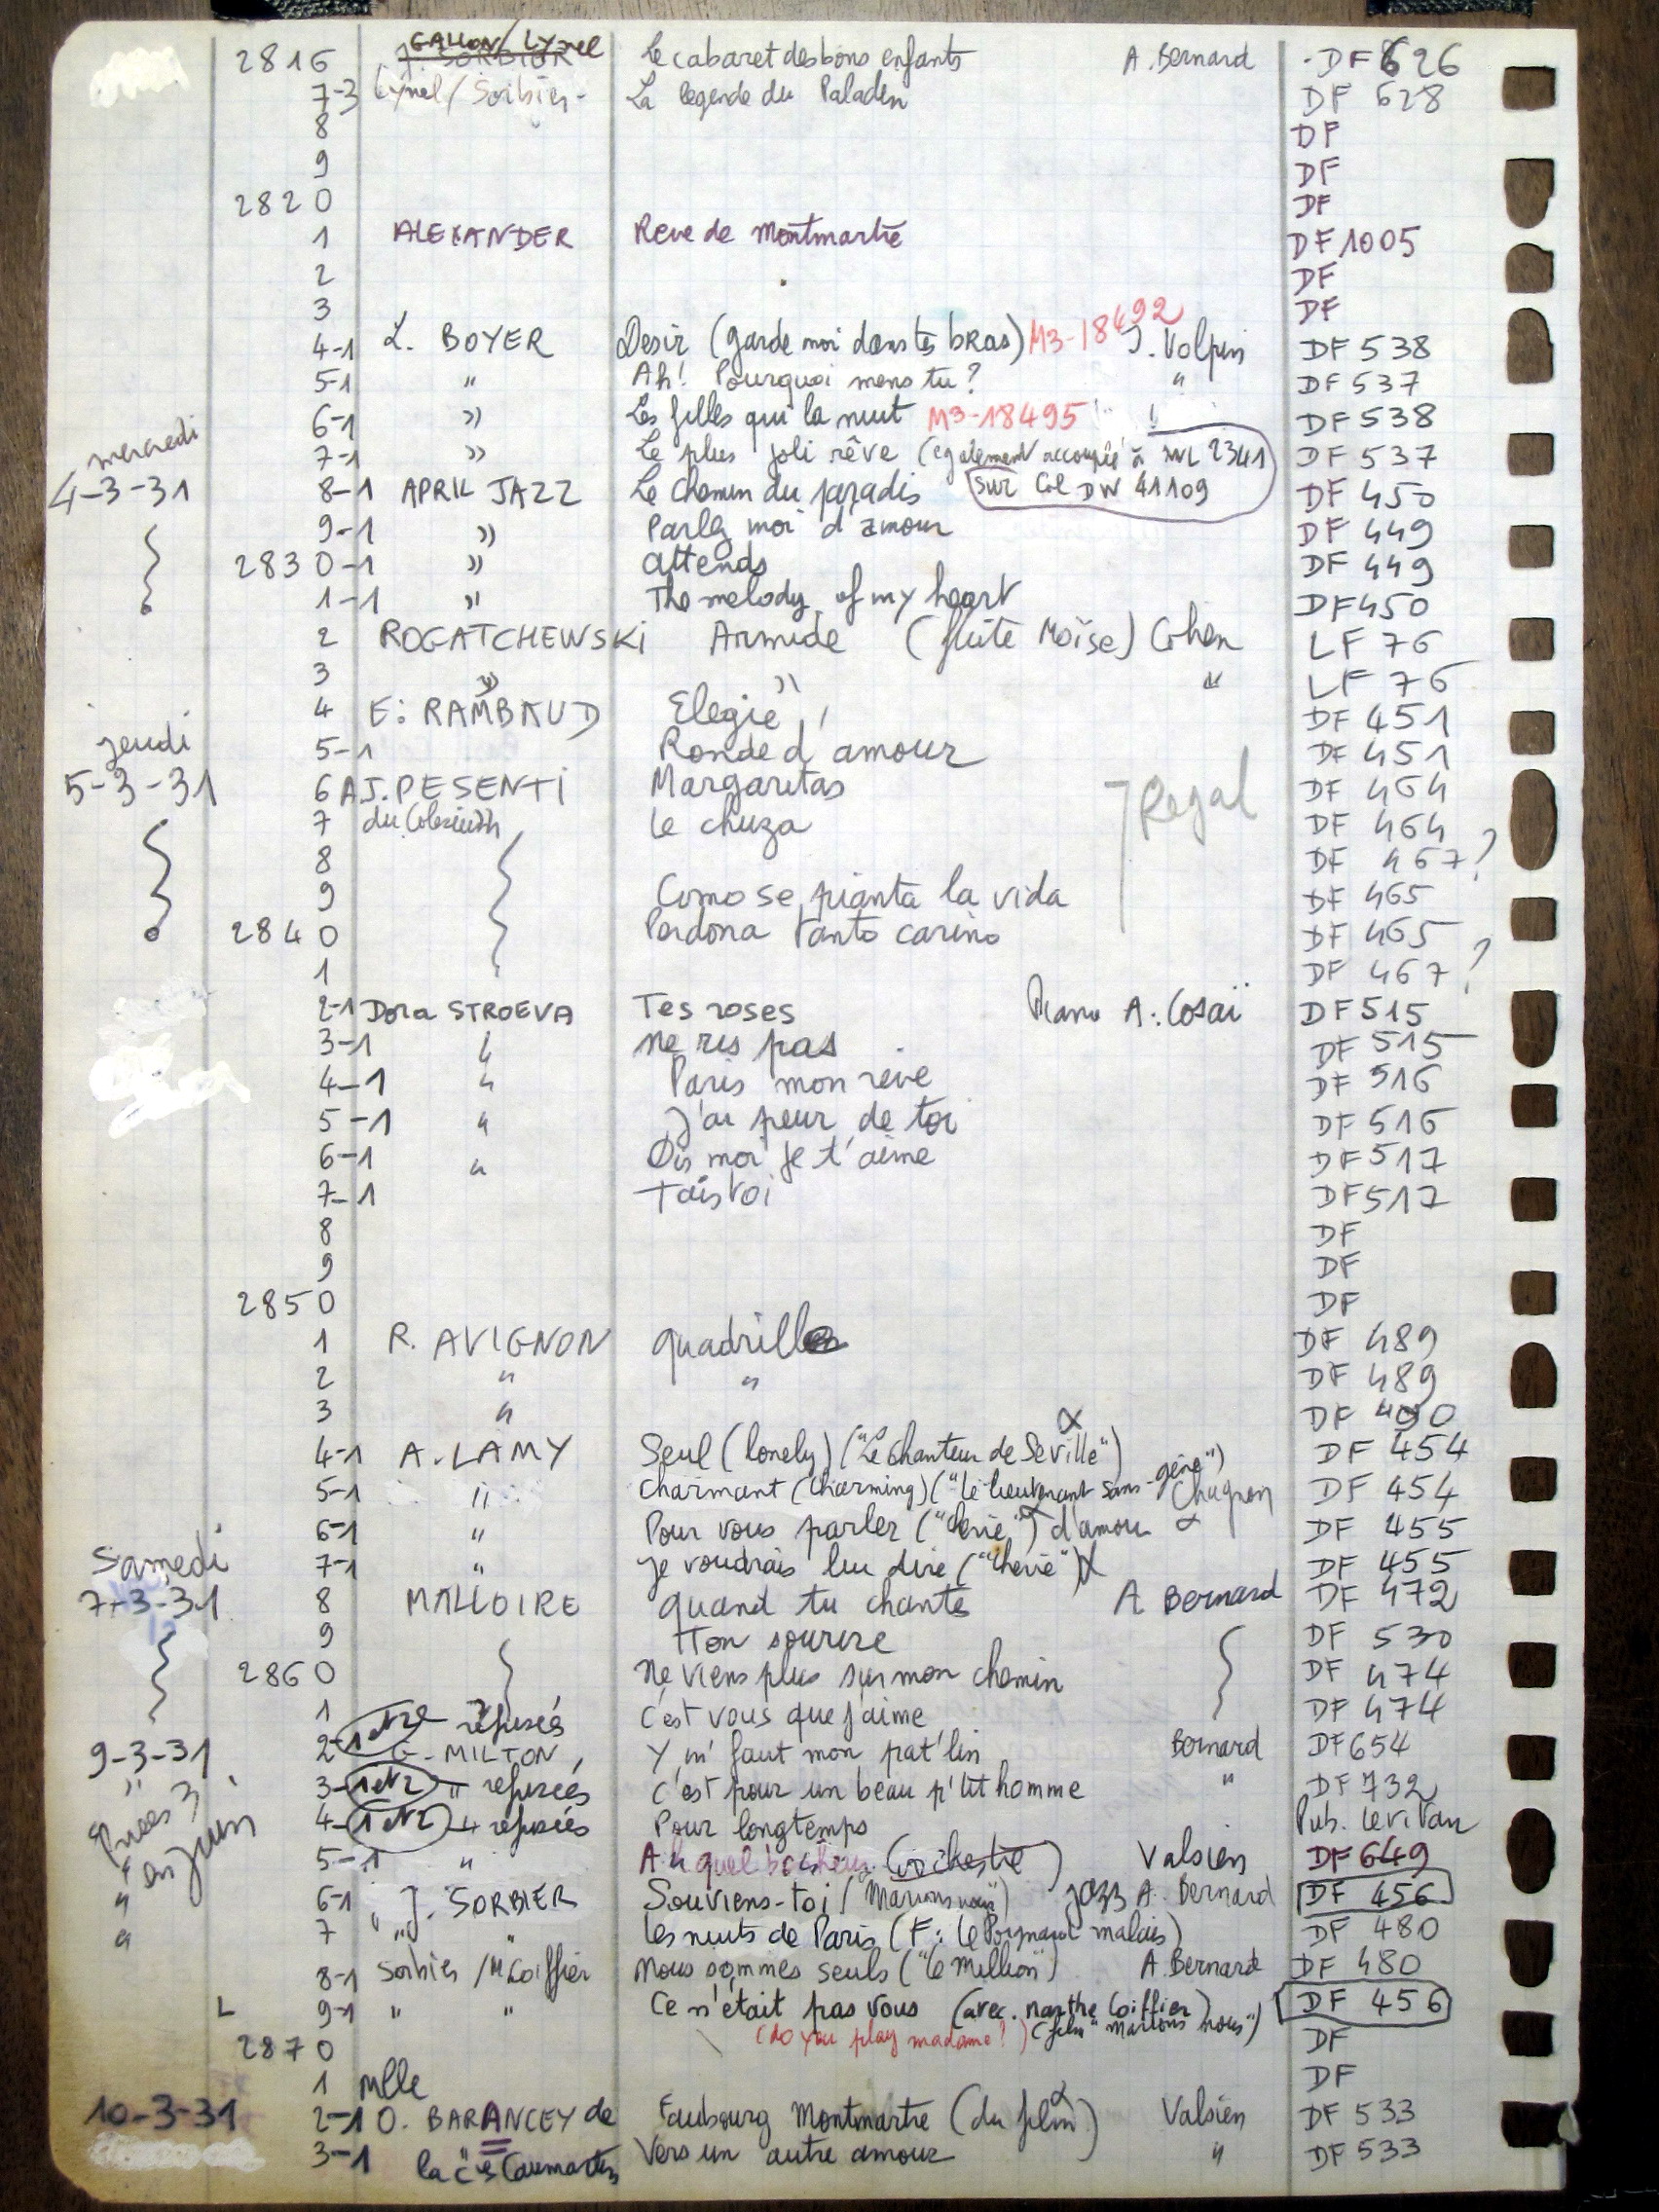 2816 GALLON/Lynel J. SORBIER Le cabaret des bons enfants A. Bernard DF 626
7-3 Lynel/Sorbier- La legende du Paladin DF 628
8 DF
9 DF
2820 DF
1 ALEXANDER Reve de Montmartre DF 1005
2 DF
3 DF
4-1 L. BOYER Desir (garde moi dans tes bras) M3-18492 J. Volpin DF 538
5-1 " Ah! Pourquoi mens tu? " DF 537
6-1 " Les filles qui la nuit M3-18495 " DF 538
mercredi
7-1 " Le plus joli rêve (egalement accouplé à WL 2341 DF 537
4-3-31 8-1 APRIL JAZZ Le chemin du paradis sur Col DW 41109 DF 450
9-1 " Parlez moi d'amour DF 449
2830-1 " Attends DF 449
1-1 " The melody of my heart DF 450
2 ROGATCHEWSKI Armide (flûte Moïse) Cohen LF 76
3 " " " LF 76
4 E: RAMBAUD Elegie DF 451
jeudi
5-1 Ronde d'amour DF 451
5-3-31 6 AJ. PESENTI Margaritas Regal DF 464
7 du Coliseum le chuza DF 464
8 DF 467?
9 Como se pianta la vida DF 465
2840 Perdona tanto carino DF 465
1 DF 467?
2-1 Dora STROEVA Tes roses Piano A. Cosaï DF 515
3-1 " ne ris pas DF 515
4-1 " Paris mon reve DF 516
5-1 " J'ai peur de toi DF 516
6-1 " Dis moi je t'aime DF 517
7-1 Tais toi DF 517
8 DF
9 DF
2850 DF
1 R. AVIGNON quadrille DF 489
2 " " DF 489
3 " DF 490
4-1 A. LAMY Seul (lonely) ("Le Chanteur de Seville") DF 454
5-1 " Charmant (Charming) ("Le lieutenant sans-gêne") Chagnon DF 454
6-1 " Pour vous parler d'amour DF 455
Samedi
7-1 " Je voudrais lui dire ("Cherie") DF 455
7-3-31 8 MALLOIRE quand tu chantes A Bernard DF 472
9 Ton sourire DF 530
2860 ne viens plus sur mon chemin DF 474
1 c'est vous que j'aime DF 474
9-3-31 2-1et2 refusés G. MILTON Y m'faut mon pat'lin Bernard DF 654
" 3-1et2 " refusées C'est pour un beau p'tit homme " DF 732
Prises 3 en juin
4-1et2 " refusées Pour longtemps Pub. Levitan
5-1 " Ah quel bonheur (orchestre) Valsien DF 649
6-1 J. SORBIER Souviens-toi ("Marions nous") jazz A. Bernard DF 456
7 " " Les nuits de Paris (F: Le Poignard malais) DF 480
8-1 Sorbier/M Coiffier Nous sommes seuls ("Le million") A. Bernard DF 480
L 9-1 " " Ce n'était pas vous (avec Marthe Coiffier) (film "Marions nous") DF 456
2870 (do you play madame?) DF
1 Mlle DF
10-3-31 2-1 O. BARANCEY de Faubourg Montmartre (du film) Valsien DF 533
3-1 la Cie Caumartin Vers un autre amour " DF 533